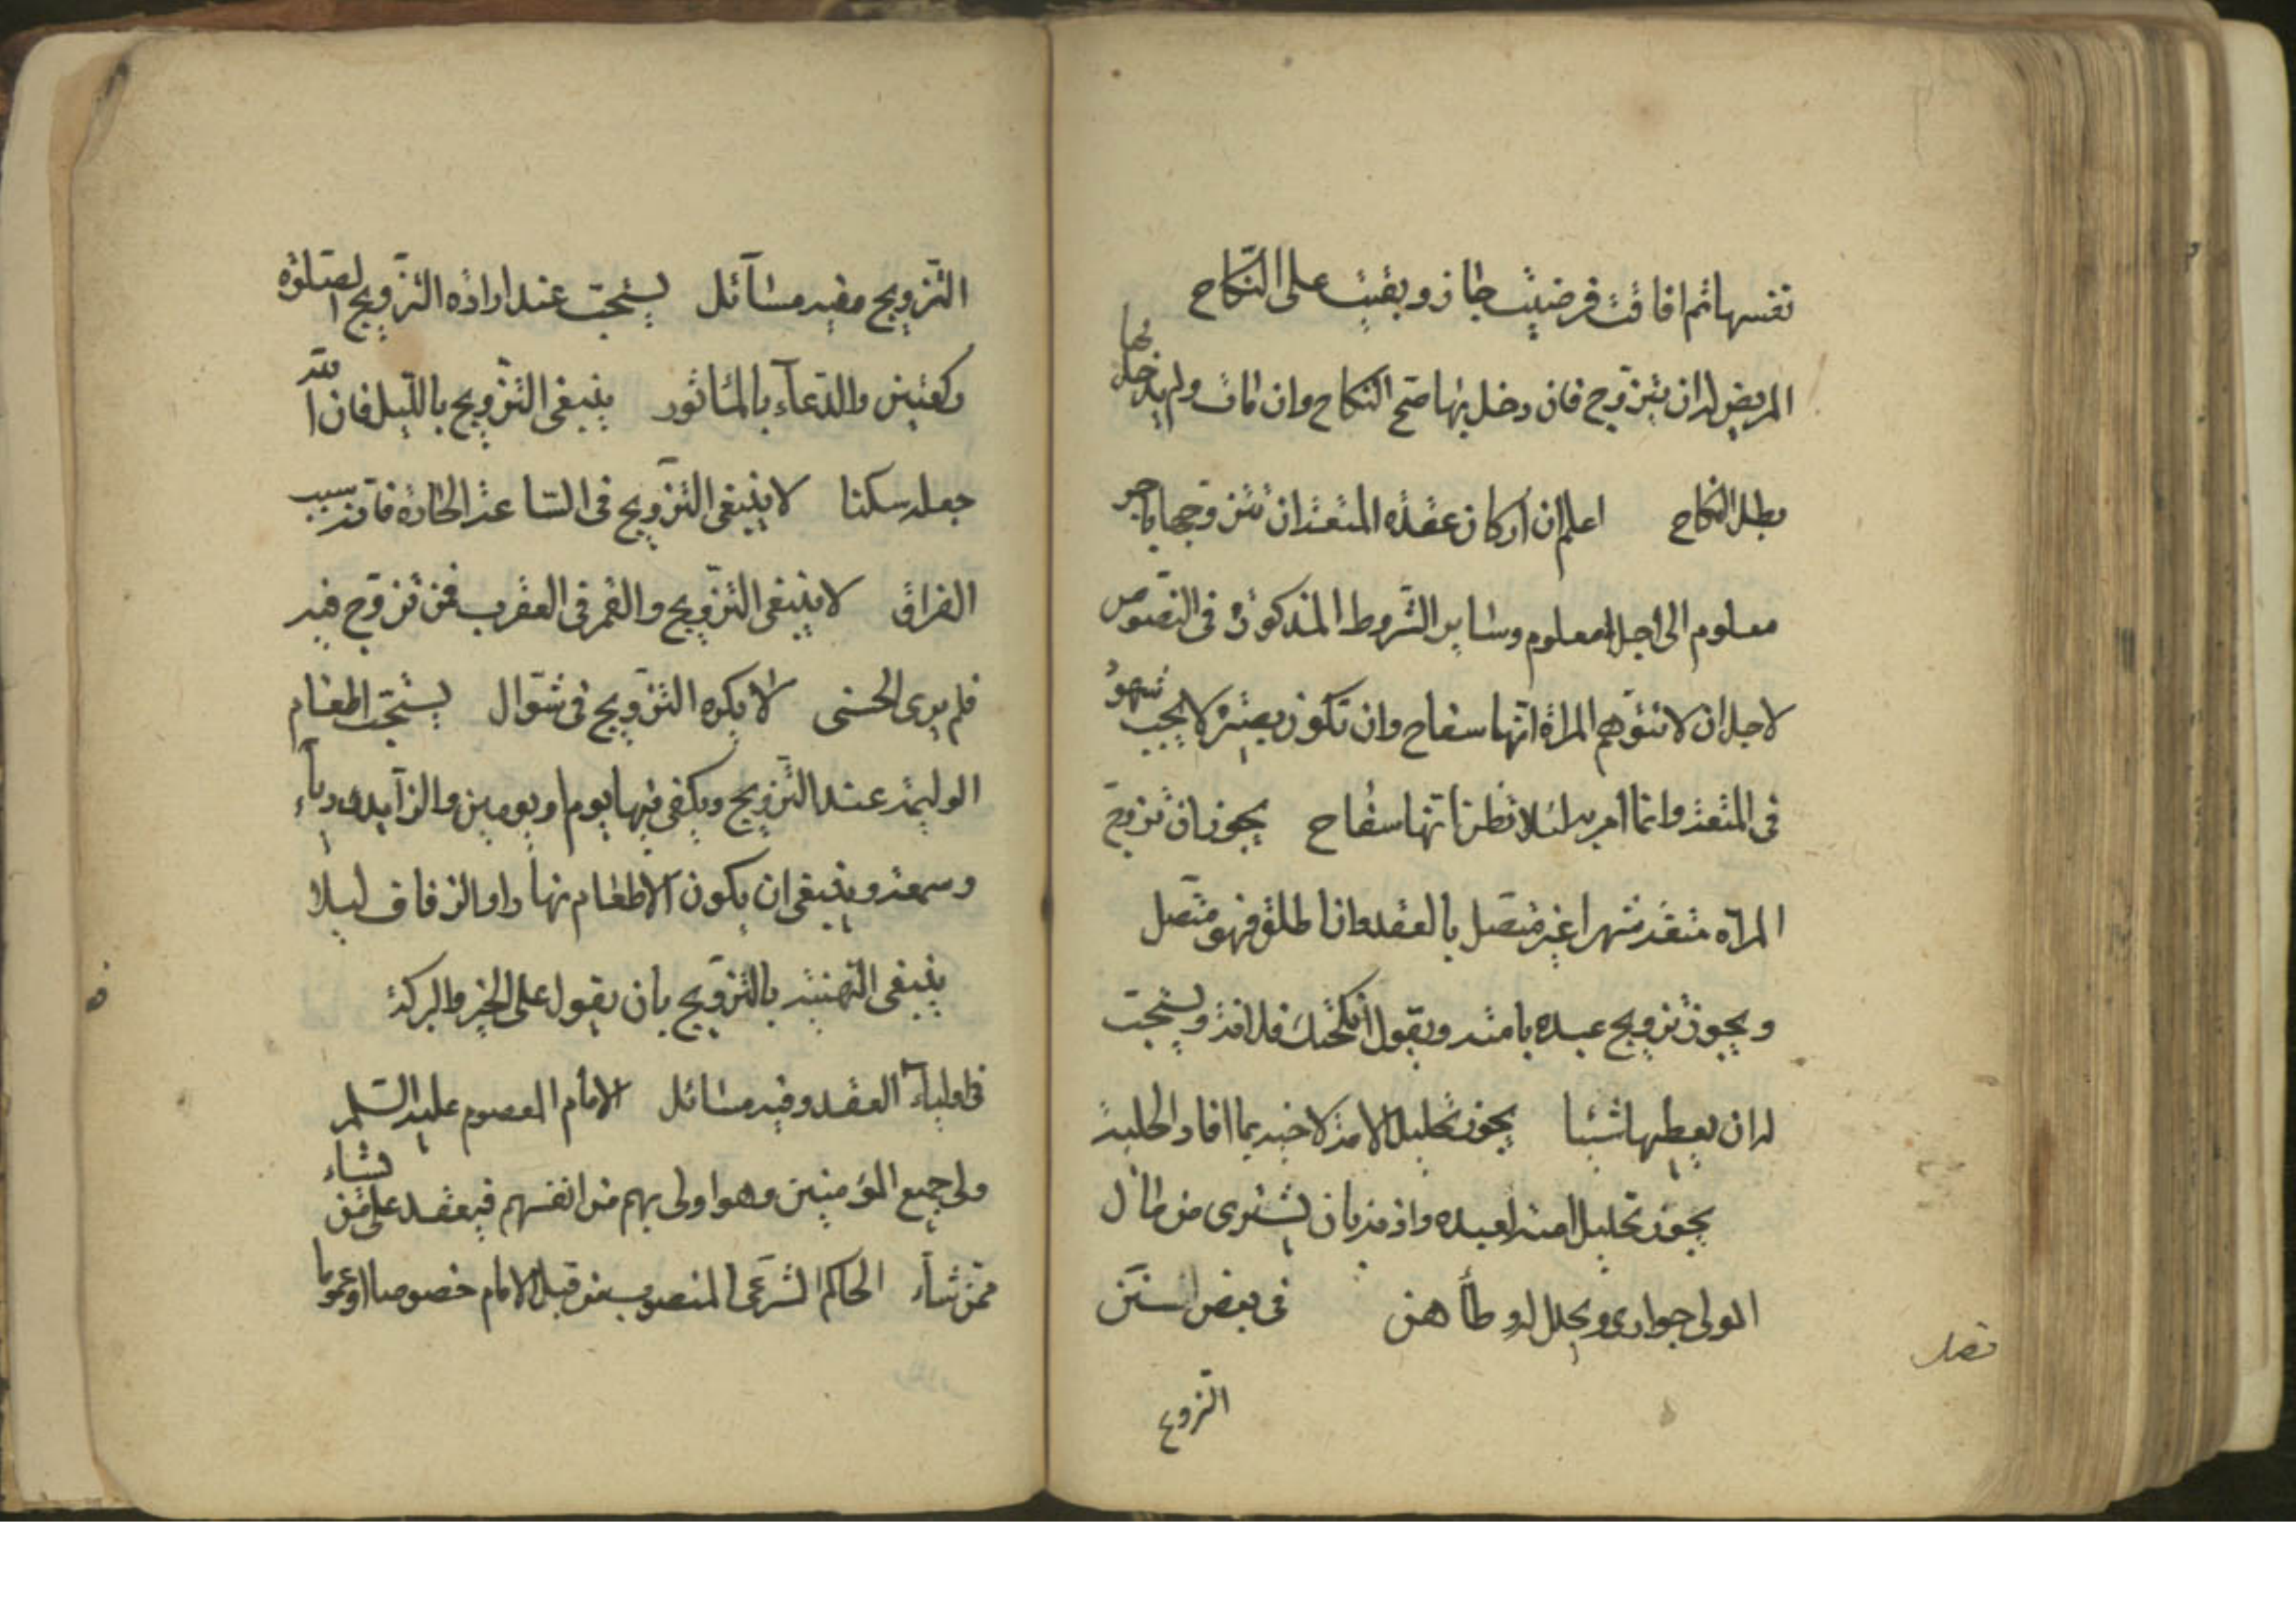 نفسها ثم افاقت فرضيت جاز وبقيت على النكاح
المريض له ان يتزوج فان دخل بها صح النكاح وان مات ولم يدخل بها
بطل النكاح اعلم ان أركان عقدة المتعة ان تتزوجها باجر
معلوم الى اجل معلوم وساير الشروط المذكورة فى النصوص
لاجل ان لا تتوهم المراة انها سفاح وان تكون بصيرة لا يجب شهود
فى المتعة وانما امر به لئلا تظن انها سفاح يجوز ان تزوج
المراة متعة شهرا غير متصل بالعقد واذا اطلق فهو متصل
ويجوز تزويج عبده بامته ويقول أنكحتك فلانة ويستحب
له ان يعطيها شيئا يجوز تحليل الامة لاخيه بما افاد الحلية
يجوز تحليل امته لعبده واذنه بان يشترى من مال
المولى جوارى ويحلل له وطأهن فى بعض سنن
فصل
التزويج
التزويج وفيه مسآئل يستحب عند ارادة التزويج الصلوة
ركعتين والدعآء بالمأثور ينبغى التزويج بالليل فان الله
جعله سكنا لا ينبغى التزويج فى الساعة الحارة فانه سبب
الفراق لا ينبغى التزويج والقمر فى العقرب فمن تزوج فيه
فلم ير الحسنى لا يكره التزويج فى شوال يستحب اطعام
الوليمة عند التزويج ويكفى فيها يوم او يومين والزآيد رياء
وسمعة وينبغى ان يكون الاطعام نهارا والزفاف ليلا
ينبغى التهنية بالتزويج بان يقول على الخير والبركة
فى اوليآء العقد وفيه مسائل الامام المعصوم عليه السلم
ولى جميع المؤمنين وهو اولى بهم من انفسهم فيعقد على من يشاء
ممن شاء الحاكم الشرعى المنصوب من قبل الامام خصوصا او عموما